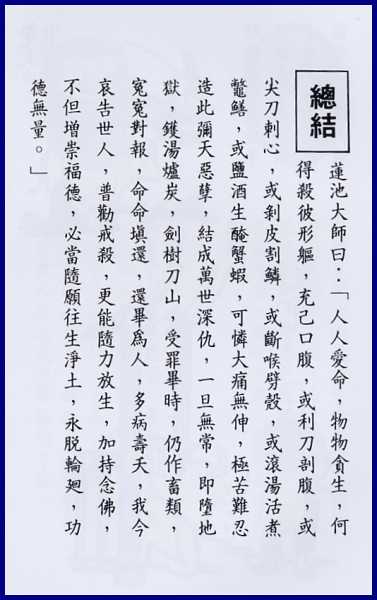 總結
蓮池大師曰：「人人愛命，物物貪生，何
得殺彼形軀，充己口腹，或利刀剖腹，或
尖刀刺心，或剝皮割鱗，或斷喉劈殼，或滾湯活煮
鼈鱔，或鹽酒生醃蟹蝦，可憐大痛無伸，極苦難忍
造此彌天惡孽，結成萬世深仇，一旦無常，即墮地
獄，鑊湯爐炭，劍樹刀山，受罪畢時，仍作畜類，
冤冤對報，命命塡還，還畢爲人，多病壽夭，我今
哀告世人，普勸戒殺，更能隨力放生，加持念佛，
不但增崇福德，必當隨願往生淨土，永脫輪廻，功
德無量。」